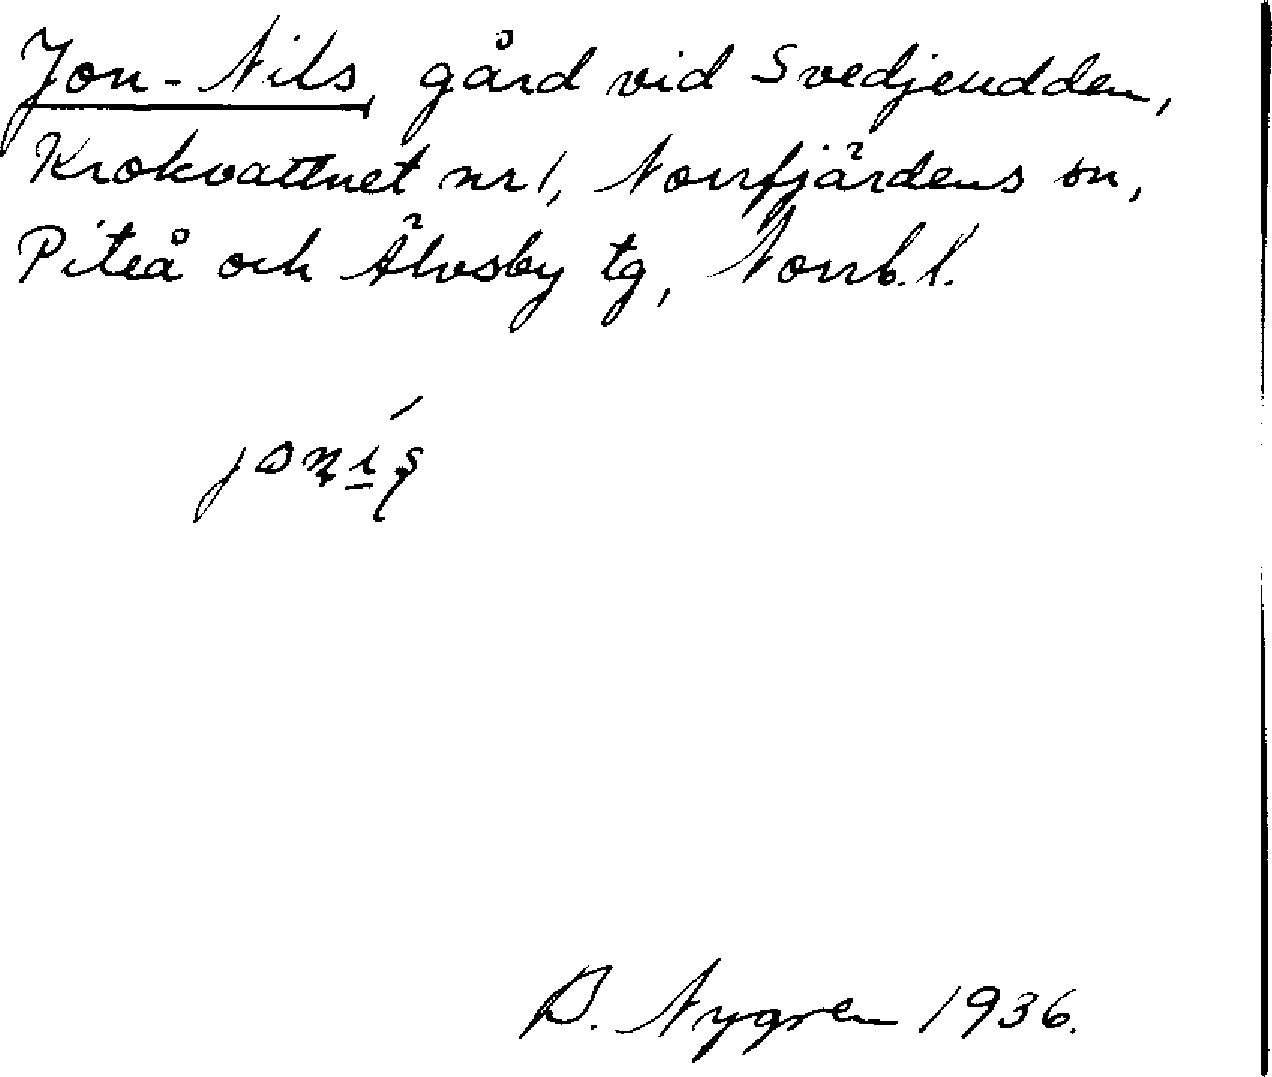 Jon-Nils, gård vid Svedjeudden,
Krokvattnet nr 1, Norrfjärdens sn,
Piteå och Älvsby tg, Norrb. l.
B. Nygren 1936.